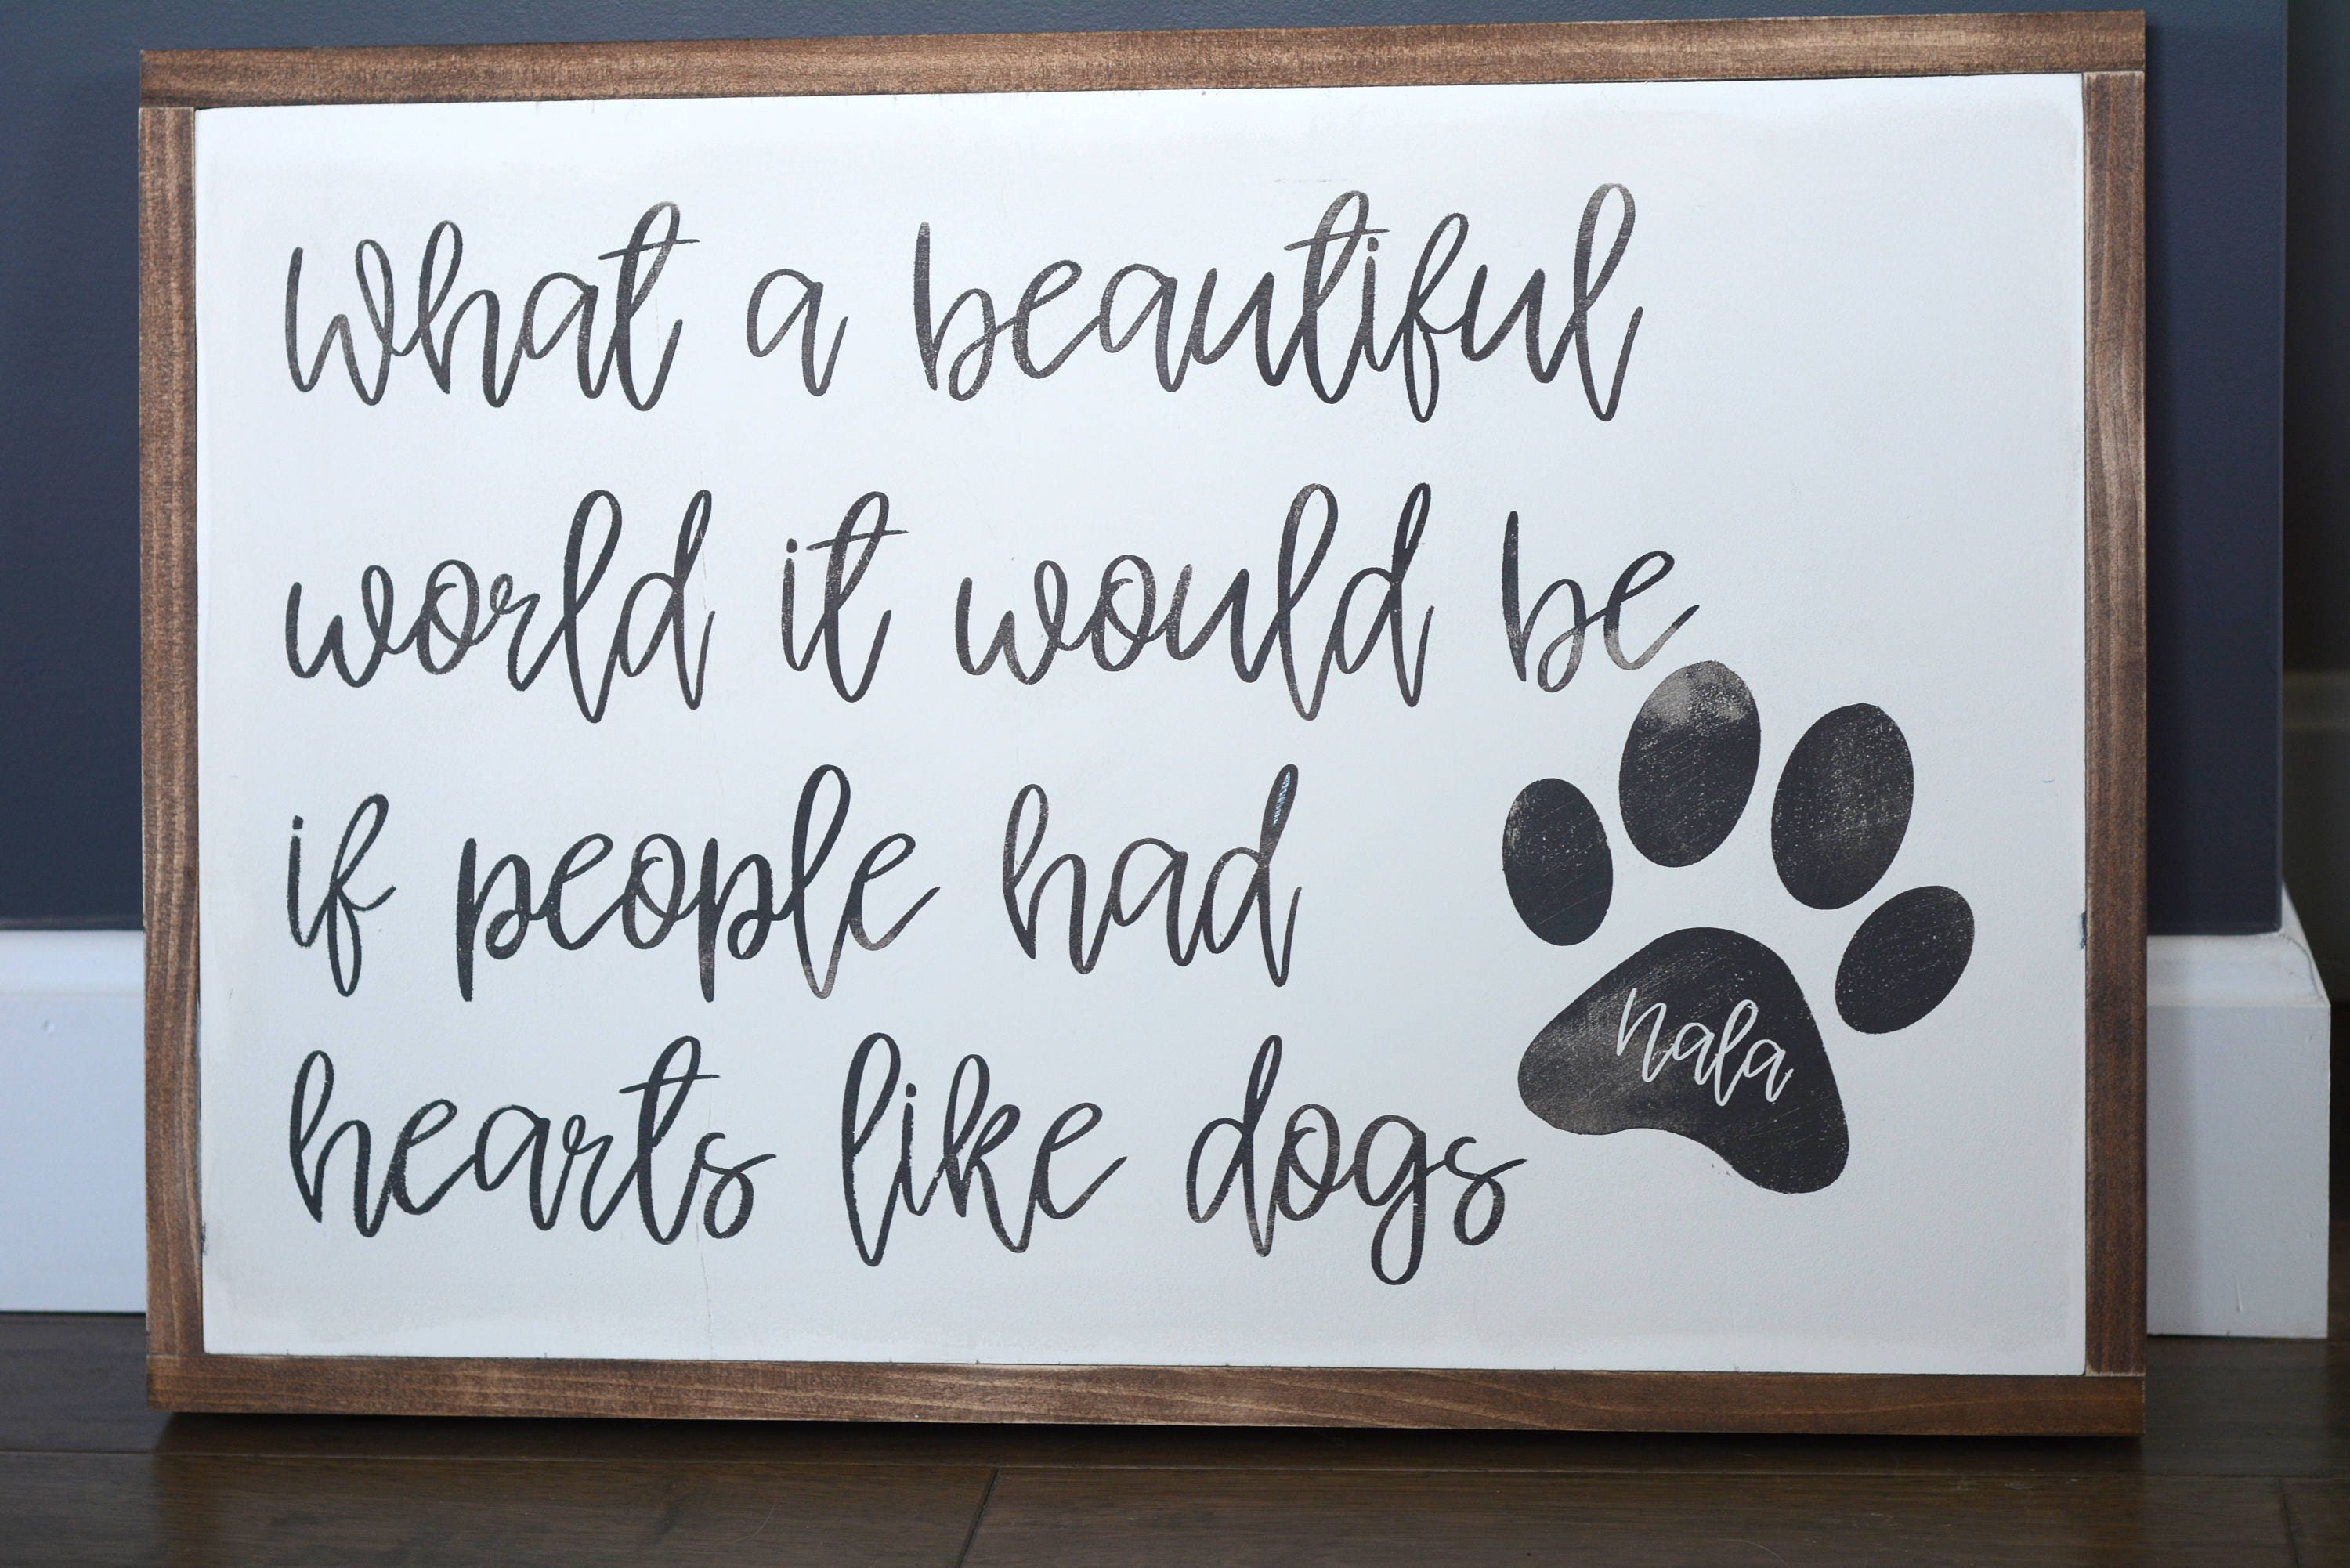 What a beautiful
world it would be
if people had
hearts like dogs
nala